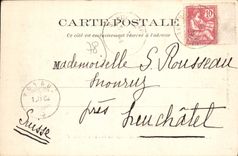 CARTE POSTALE
Ce côté est exclusivement réservé à l'adresse
78.
Mademoiselle S. Rousseau
Monruz
près Neuchâtel
Suisse
10